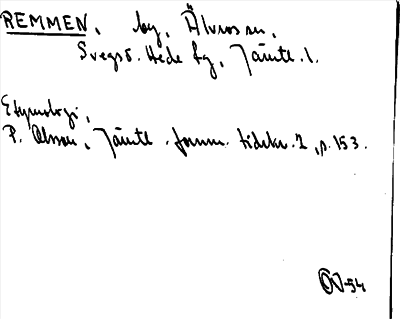 REMMEN, by, Älvros sn,
Svegs o. Hede tg, Jämtl. l.
Etymologi,
P. Olsson, Jämtl. fornm. tidskr. 2, p. 153.
ON-54